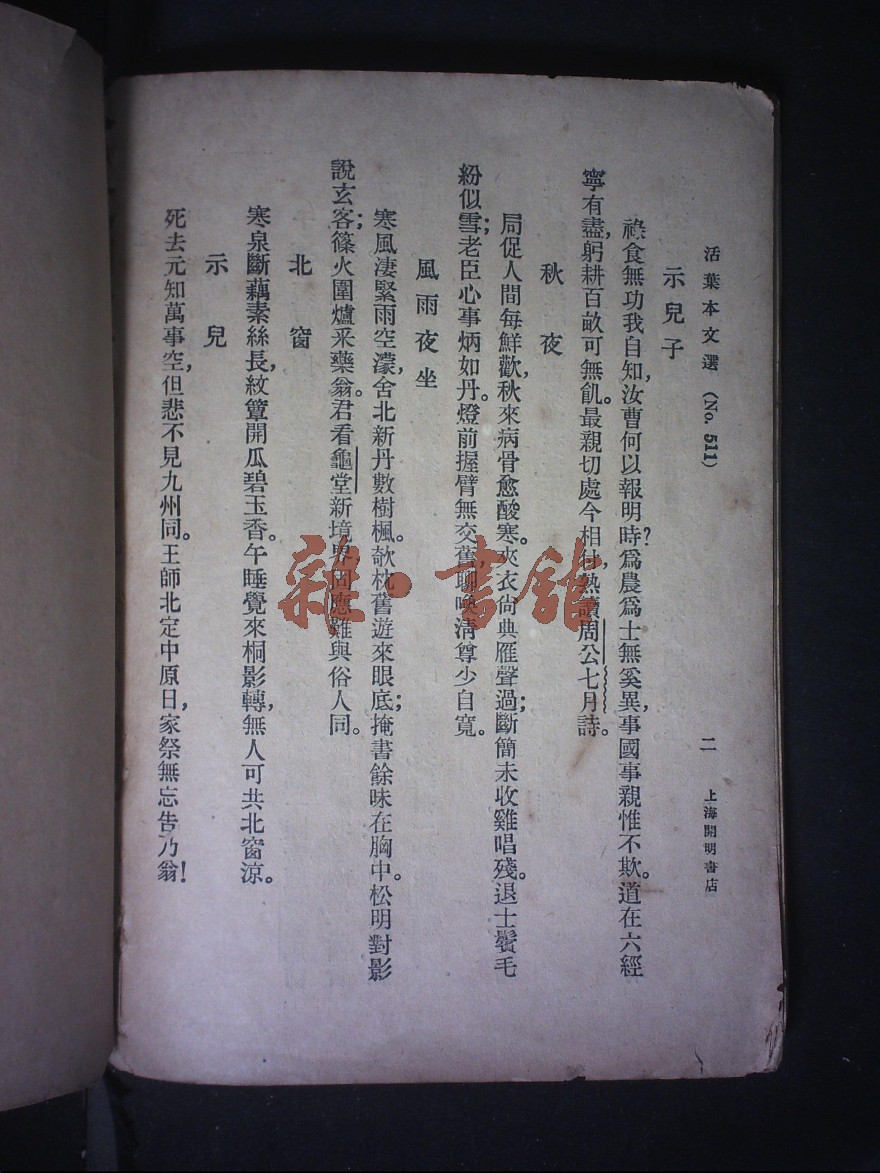 活葉本文選 (No. 511) 二 上海開明書店
示兒子
祿食無功我自知,汝曹何以報明時?爲農爲士無奚異,事國事親惟不欺。道在六經
寧有盡,躬耕百畝可無飢。最親切處今相付,熟讀周公七月詩。
秋夜
局促人間每鮮歡,秋來病骨愈酸寒。夾衣尙典雁聲過;斷簡未收雞唱殘。退士鬢毛
紛似雪;老臣心事炳如丹。燈前握臂無交舊,聊喚淸尊少自寬。
風雨夜坐
寒風淒緊雨空濛,舍北新丹數樹楓。欹枕舊遊來眼底;掩書餘味在胸中。松明對影
說玄客;篠火圍爐采藥翁。君看龜堂新境界,固應難與俗人同。
北窗
寒泉斷藕素絲長,紋簟開瓜碧玉香。午睡覺來桐影轉,無人可共北窗涼。
示兒
死去元知萬事空,但悲不見九州同。王師北定中原日,家祭無忘告乃翁!
雜·書館